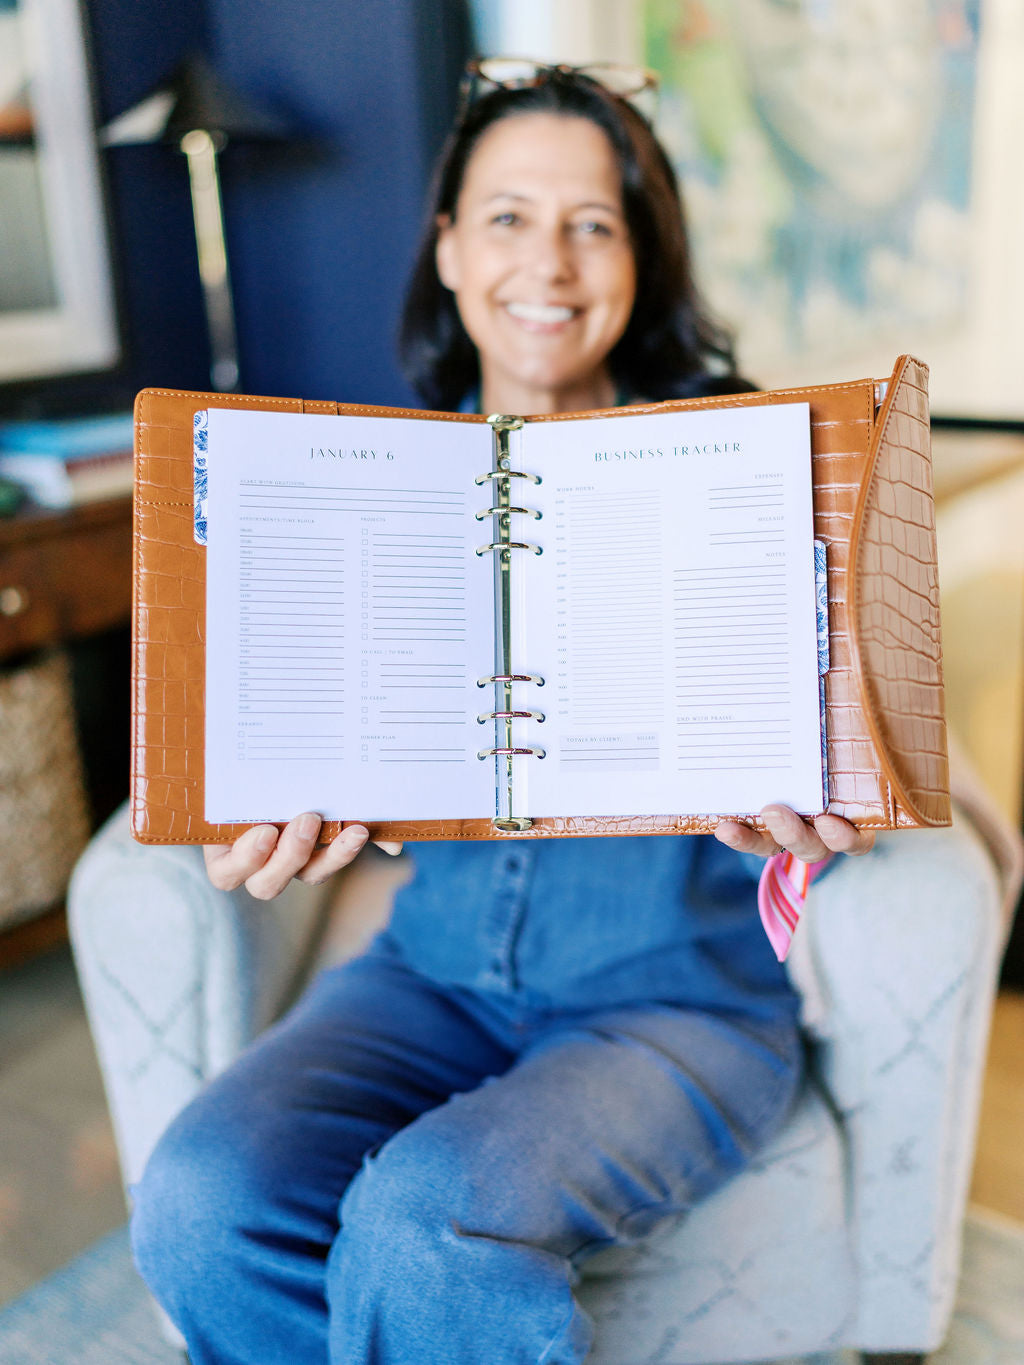 JANUARY 6
START WITH GRATITUDE
APPOINTMENTS/TIME BLOCK
PROJECTS
TO CALL / TO EMAIL
TO CLEAN
ERRANDS
DINNER PLAN
BUSINESS TRACKER
WORK HOURS
EXPENSES
MILEAGE
NOTES
END WITH PRAISE
TOTALS BY CLIENT: BILLED